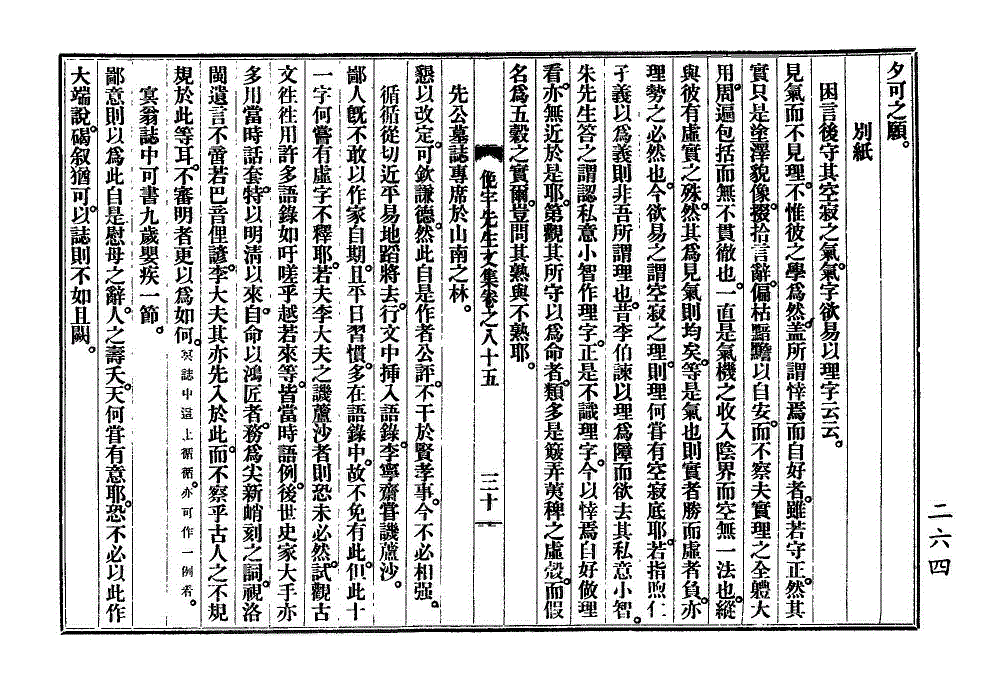 夕可之願。
別紙
困言後守其空寂之氣。氣字欲易以理字云云。
見氣而不見理。不惟彼之學爲然。蓋所謂悻焉而自好者。雖若守正。然其
實只是塗澤貌像。掇拾言辭。偏枯黯黵以自安。而不察夫實理之全體大
用。周遍包括而無不貫徹也。一直是氣機之收入陰界而空無一法也。縱
與彼有虛實之殊。然其爲見氣則均矣。等是氣也則實者勝而虛者負。亦
理勢之必然也。今欲易之謂空寂之理。則理何甞有空寂底耶。若指煦仁
孑義以爲義則非吾所謂理也。昔李伯諫以理爲障而欲去其私意小智。
朱先生答之謂認私意小智作理字。正是不識理字。今以悻焉自好做理
看。亦無近於是耶。第觀其所守以爲命者。類多是簸弄荑稗之虛殼。而假
名爲五穀之實爾。豈問其熟與不熟耶。
先公墓誌專席於山南之林。
俛宇先生文集卷之八十五
三十
懇以改定。可欽謙德。然此自是作者公評。不干於賢孝事。今不必相强。
循循從切近平易地蹈將去。行文中揷入語錄。李寧齋甞譏蘆沙。
鄙人旣不敢以作家自期。且平日習慣。多在語錄中。故不免有此。但此十
一字何嘗有虛字不釋耶。若夫李大夫之譏蘆沙者則恐未必然。試觀古
文往往用許多語錄如吁嗟乎越若來等。皆當時語例。後世史家大手亦
多用當時話套。特以明淸以來。自命以鴻匠者。務爲尖新峭刻之詞。視洛
閩遺言不啻若巴音俚諺。李大夫其亦先入於此。而不察乎古人之不規
規於此等耳。不審明者更以爲如何。誌中這上循循。亦可作一例看。
寞翁誌中可書九歲嬰疾一節。
鄙意則以爲此自是慰母之辭。人之壽夭。天何甞有意耶。恐不必以此作
大端說。碣叙猶可以。誌則不如且闕。
二六四